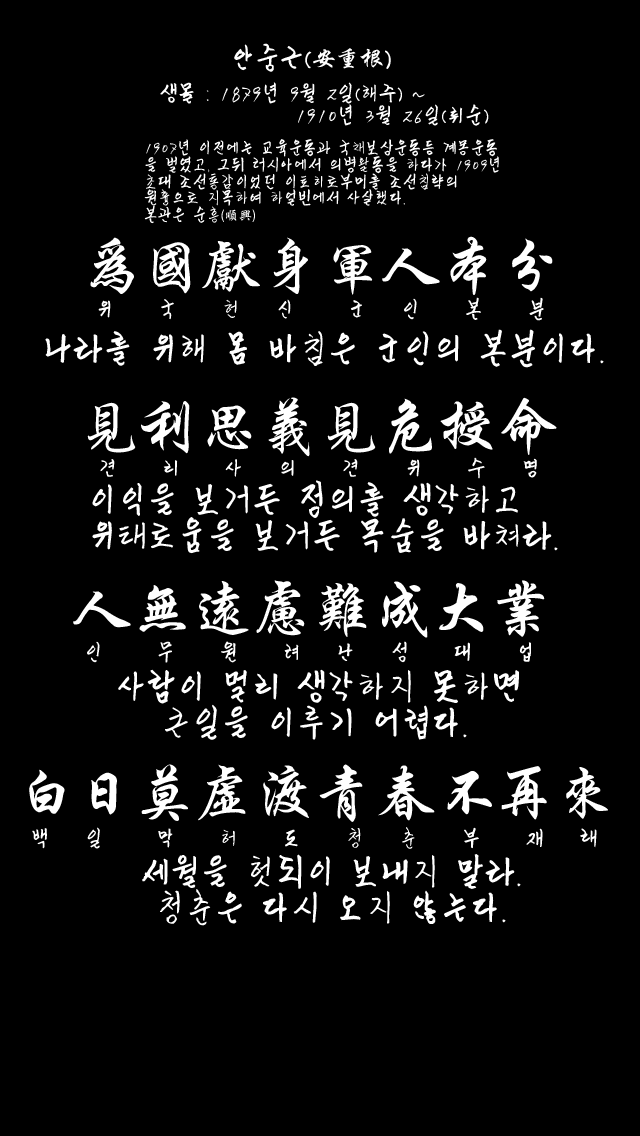 안중근(安重根)
생몰 : 1879년 9월 2일(해주) ~
1910년 3월 26일(뤼순)
1907년 이전에는 교육운동과 국채보상운동등 계몽운동
을 벌였고, 그뒤 러시아에서 의병활동을 하다가 1909년
초대 조선통감이었던 이토히로부미를 조선침략의
원흉으로 지목하여 하얼빈에서 사살했다.
본관은 순흥(順興)
爲國獻身軍人本分
위국헌신군인본분
나라를 위해 몸 바침은 군인의 본분이다.
見利思義見危授命
견리사의견위수명
이익을 보거든 정의를 생각하고
위태로움을 보거든 목숨을 바쳐라.
人無遠慮難成大業
인무원려난성대업
사람이 멀리 생각하지 못하면
큰일을 이루기 어렵다.
白日莫虛渡青春不再來
백일막허도청춘부재래
세월을 헛되이 보내지 말라.
청춘은 다시 오지 않는다.